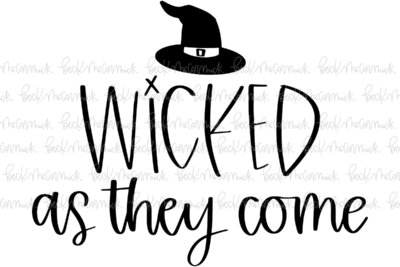 WiCKED
as they come